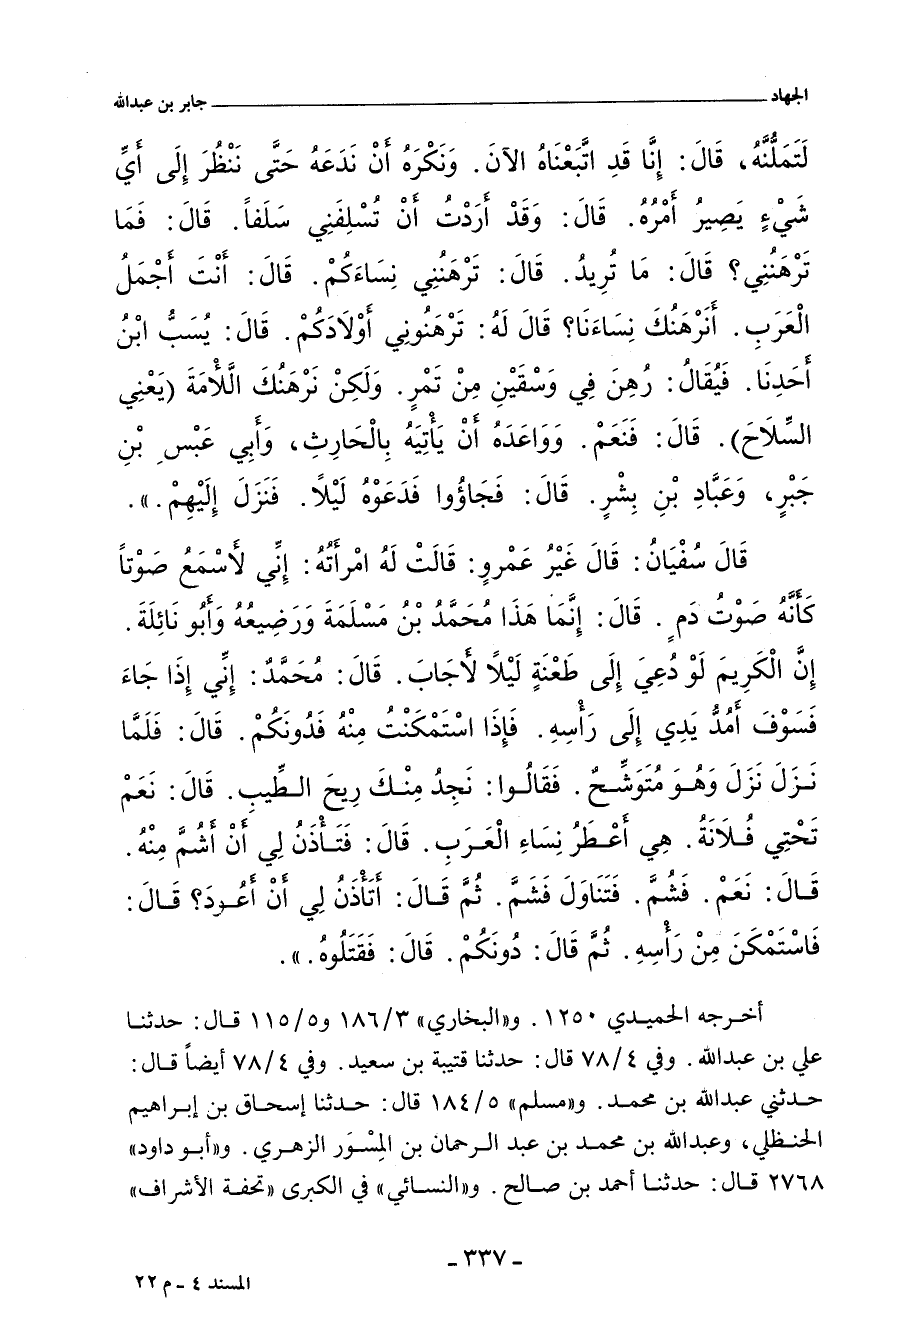 الجهاد ـــــــــ جابر بن عبدالله
لَتَمَلُّنَّهُ، قَالَ: إِنَّا قَدِ اتَّبَعْنَاهُ الآنَ. وَنَكْرَهُ أَنْ نَدَعَهُ حَتَّى نَنْظُرَ إِلَى أَيِّ
شَيْءٍ يَصِيرُ أَمْرُهُ. قَالَ: وَقَدْ أَرَدْتُ أَنْ تُسْلِفَنِي سَلَفاً. قَالَ: فَمَا
تَرْهَنُنِي؟ قَالَ: مَا تُرِيدُ. قَالَ: تَرْهَنُنِي نِسَاءَكُمْ. قَالَ: أَنْتَ أَجْمَلُ
الْعَرَبِ. أَنَرْهَنُكَ نِسَاءَنَا؟ قَالَ لَهُ: تَرْهَنُونِي أَوْلَادَكُمْ. قَالَ: يُسَبُّ ابْنُ
أَحَدِنَا. فَيُقَالُ: رُهِنَ فِي وَسْقَيْنِ مِنْ تَمْرٍ. وَلَكِنْ نَرْهَنُكَ الَّلأْمَةَ (يَعْنِي
السِّلَاحَ). قَالَ: فَنَعَمْ. وَوَاعَدَهُ أَنْ يَأْتِيَهُ بِالْحَارِثِ، وَأَبِي عَبْسِ بْنِ
جَبْرٍ، وَعَبَّادِ بْنِ بِشْرٍ. قَالَ: فَجَاؤُوا فَدَعَوْهُ لَيْلًا. فَنَزَلَ إِلَيْهِمْ.».
قَالَ سُفْيَانُ: قَالَ غَيْرُ عَمْرٍو: قَالَتْ لَهُ امْرَأَتُهُ: إِنِّي لأَسْمَعُ صَوْتاً
كَأَنَّهُ صَوْتُ دَمٍ. قَالَ: إِنَّمَا هَذَا مُحَمَّدُ بْنُ مَسْلَمَةَ وَرَضِيعُهُ وَأَبُو نَائِلَةَ.
إِنَّ الْكَرِيمَ لَوْ دُعِيَ إِلَى طَعْنَةٍ لَيْلًا لأَجَابَ. قَالَ: مُحَمَّدٌ: إِنِّي إِذَا جَاءَ
فَسَوْفَ أَمُدُّ يَدِي إِلَى رَأْسِهِ. فَإِذَا اسْتَمْكَنْتُ مِنْهُ فَدُونَكُمْ. قَالَ: فَلَمَّا
نَزَلَ نَزَلَ وَهُوَ مُتَوَشِّحٌ. فَقَالُوا: نَجِدُ مِنْكَ رِيحَ الطِّيبِ. قَالَ: نَعَمْ
تَحْتِي فُلَانَةُ. هِي أَعْطَرُ نِسَاءِ الْعَرَبِ. قَالَ: فَتَأْذَنُ لِي أَنْ أَشُمَّ مِنْهُ.
قَالَ: نَعَمْ. فَشُمَّ. فَتَنَاوَلَ فَشَمَّ. ثُمَّ قَالَ: أَتَأْذَنُ لِي أَنْ أَعُودَ؟ قَالَ:
فَاسْتَمْكَنَ مِنْ رَأْسِهِ. ثُمَّ قَالَ: دُونَكُمْ. قَالَ: فَقَتَلُوهُ.».
أخرجه الحميدي ١٢٥٠. و«البخاري» ١٨٦/٣ و١١٥/٥ قال: حدثنا
علي بن عبدالله. وفي ٧٨/٤ قال: حدثنا قتيبة بن سعيد. وفي ٧٨/٤ أيضاً قال:
حدثني عبدالله بن محمد. و«مسلم» ١٨٤/٥ قال: حدثنا إسحاق بن إبراهيم
الحنظلي، وعبدالله بن محمد بن عبد الرحمان بن المِسْوَر الزهري. و«أبو داود»
٢٧٦٨ قال: حدثنا أحمد بن صالح. و«النسائي» في الكبرى «تحفة الأشراف»
ـ ٣٣٧ ـ
المسند ٤ ـ م ٢٢